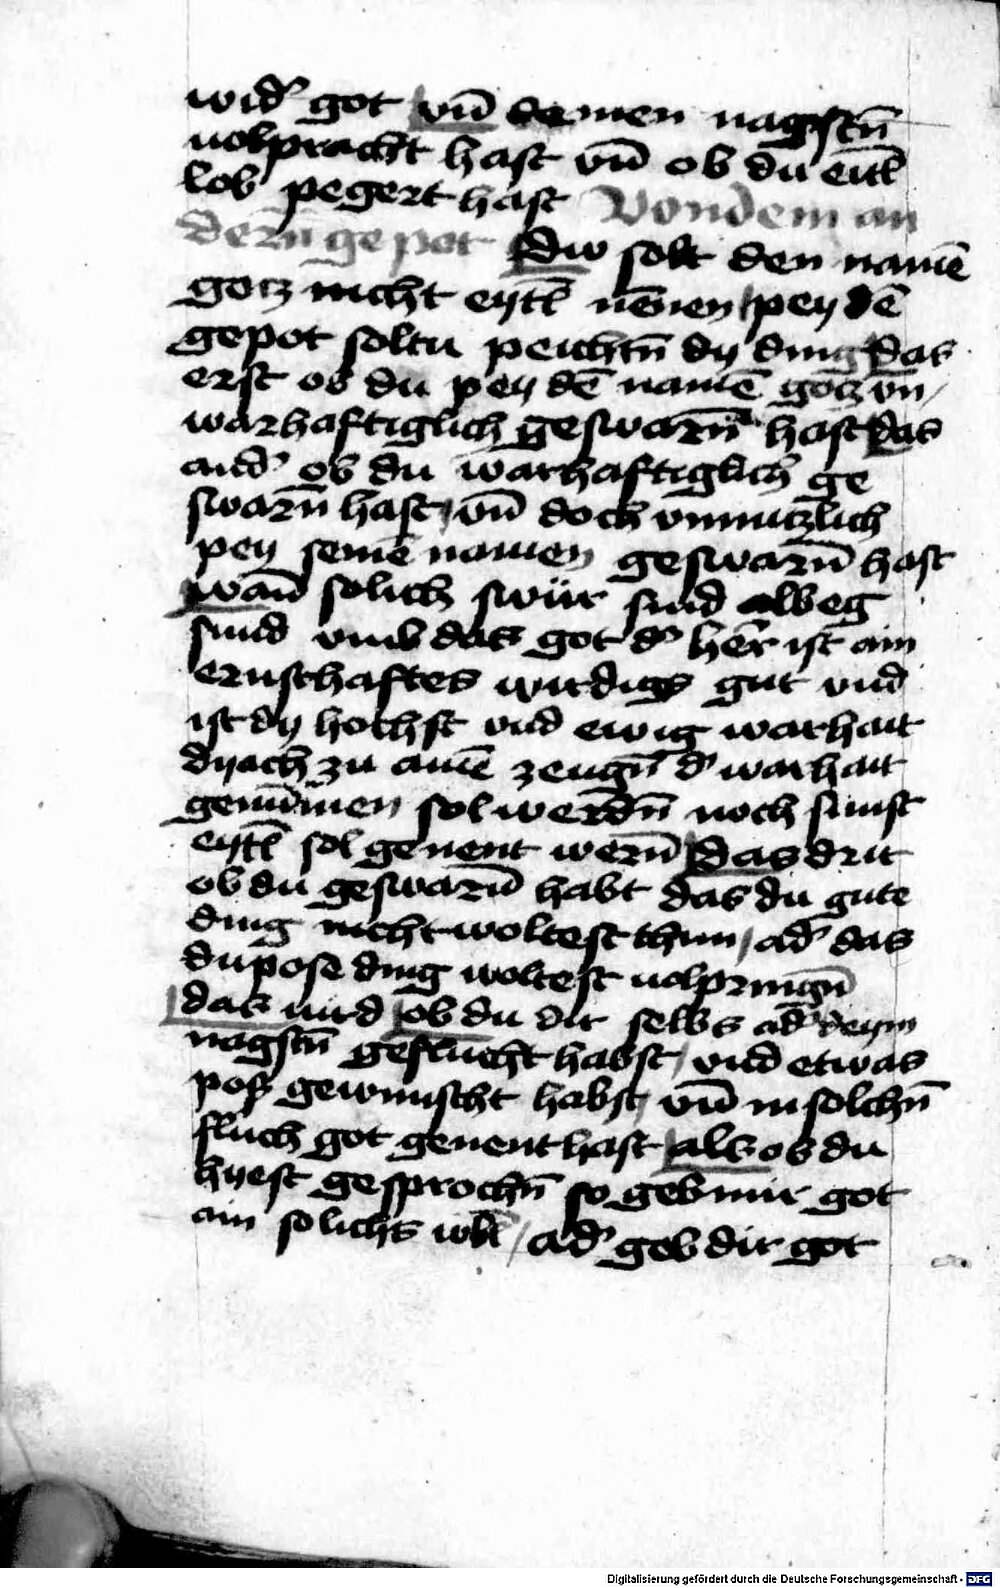 wid' got vn̄ deinen nagstn̄
volpracht hast vn̄ ob du eitl̄
lob pegert hast Von dem an
dern̄ gepot Dw solt den namē
gotz nicht eytl̄ nēnen / pey dē
gepot soltu peichtn̄ dy ding das
erst ob du pey dē namē gotz vn /
warhaftiglich geswarn̄ hast das
and' ob du warhaftiglich ge
swarn̄ hast / vn̄ doch vnnutzlich
pey seinē namen geswarn̄ hast
wan̄ solich swür sind albeg
sund vmb das got d' her̄ ist ain
ernsthaftes wirdigs gut vnd
ist dy hochst vnd ewig warhait
dy ach zu ainē zeugn̄ d' warhait
genūmen sol werdn̄ noch sunst
eytl̄ sol genent wern̄ Das drit
ob du geswarn̄ habt das du gute
ding nicht woltest thun / ad' das
du pose ding woltest volpringn̄
das uird ob du dir selbs ad' deym
nagstn̄ geflucht habst / vnd etwas
poß gewunscht habst / vn̄ in solchn̄
fluch got genent hast als ob du
hyest gesprochn̄ so geb mir got
ain solichs vbl̄ / ad' geb dir got
Digitalisierung gefördert durch die Deutsche Forschungsgemeinschaft - DFG